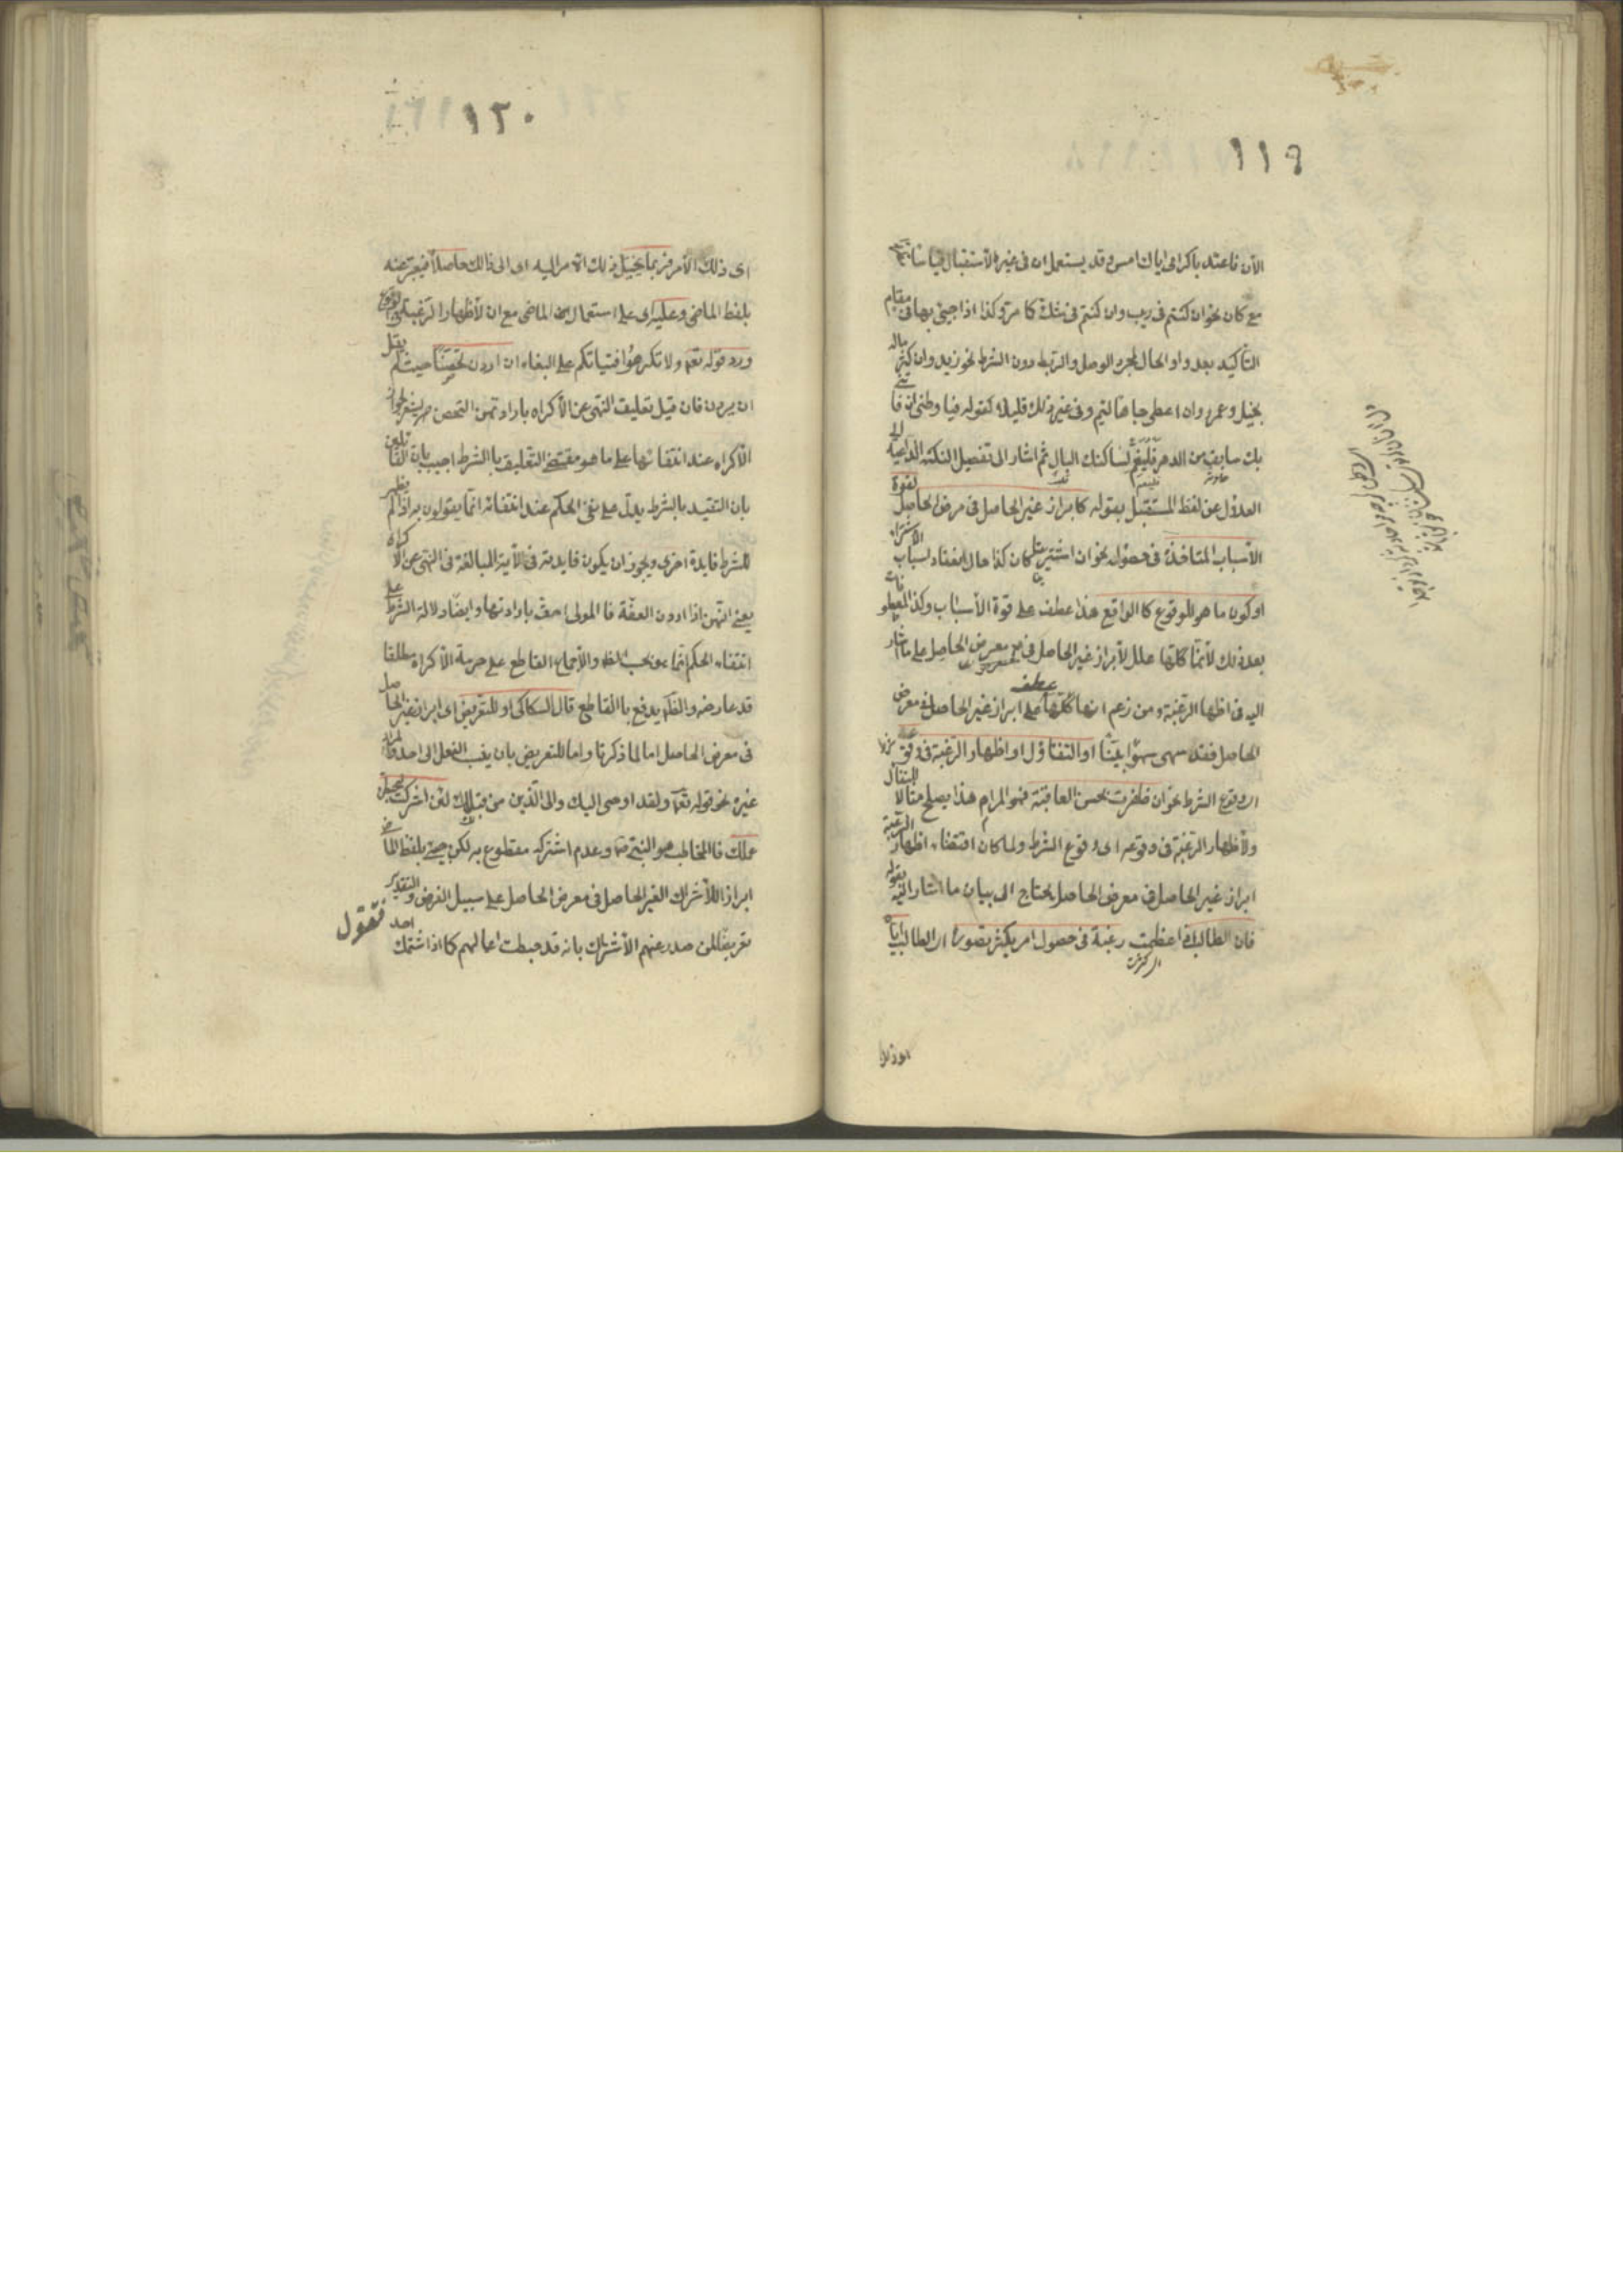 ١١٩
الآن فاعتد باكرامى اياك امس وقد يستعمل ان فى غير الاستقبال قياسا
مع كان نحو ان كنتم فى ريب وان كنتم فى شك كما مر وكذا اذا جيئ بها فى مقام
التأكيد بعد واو الحال لمجرد الوصل والربط دون الشرط نحو زيد وان كثر ماله
بخيل وعمرو وان اعطى جاها لئيم وفى غير ذلك قليلا كقوله فيا وطنى ان فا تنى
بك سابق من الدهر فلينعم لساكنك البال ثم اشار الى تفصيل النكتة الداعية الى
العدول عن لفظ المستقبل بقوله كابراز غير الحاصل فى معرض الحاصل لقوة
الأسباب المتاخذة فى حصوله نحو ان اشتريت كان كذا حال انعقاد اسباب الاشتراء
او كون ما هو للوقوع كالواقع هذا عطف على قوة الأسباب وكذا المعطوفات
بعد ذلك لأنها كلها علل لأبراز غير الحاصل فى معرض الحاصل على ما اشار
اليه فى اظهار الرغبة ومن زعم انها كلها عطف على ابراز غير الحاصل فى معرض
الحاصل فقد سهى سهوا بينا او التفاؤل او اظهار الرغبة فى وقوعه
اى وقوع الشرط نحو ان ظفرت بحسن العاقبة فهو المرام هذا يصلح مثالا للتفأل
ولأظهار الرغبة فى وقوعه اى وقوع الشرط ولما كان اقتضاء اظهار الرغبة
ابراز غير الحاصل فى معرض الحاصل يحتاج الى بيان ما اشار اليه بقوله
فان الطالب اذا عظمت رغبة فى حصول امر يكثر تصوره اى الطالب اياه
١٢٠
اى ذلك الأمر فربما يخيل ذلك الامر اليه اى الى ذلك حاصلا فيعبر عنه
بلفظ الماضى وعليه اى على استعمال الماضى مع ان لأظهار الرغبة فى الوقوع
ورد قوله تعه ولا تكرهوا فتياتكم على البغاء ان اردن تحصنا حيث لم يقل
ان يردن فان قيل تعليق النهى عن الأكراه بارادتهن التحصن يشعر بجواز
الأكراه عند انتفائها على ما هو مقتضى التعليق بالشرط اجيب بان القائلين
بان التقييد بالشرط يدل على نفى الحكم عند انتفائه انما يقولون به اذا لم يظهر
للشرط فايدة اخرى ويجوز ان يكون فايدته فى الآية المبالغة فى النهى عن الاكراه
يعنى انهن اذا اردن العفة فالمولى احق بارادتها وايضا دلالة الشرط على
انتفاء الحكم انما هو بحسب الظه والأجماع القاطع على حرمة الاكراه مطلقا
قد عارضه والظه يدفع بالقاطع قال السكاكى او للتعريض اى ابراز غير الحاصل
فى معرض الحاصل اما لما ذكرنا واما للتعريض بان ينسب الفعل الى احد والمراد
غيره نحو قوله تعه ولقد اوحى اليك والى الذين من قبلك لئن اشركت ليحبطن
عملك فالمخاطب هو النبى ص وعدم اشراكه مقطوع به لكن جيئ بلفظ الماضى
ابراز اللأشراك الغير الحاصل فى معرض الحاصل على سبيل الفرض والتقدير
تعريضا لمن صدر عنهم الأشراك بانه قد حبطت اعمالهم كما اذا شتمك احد
فتقول